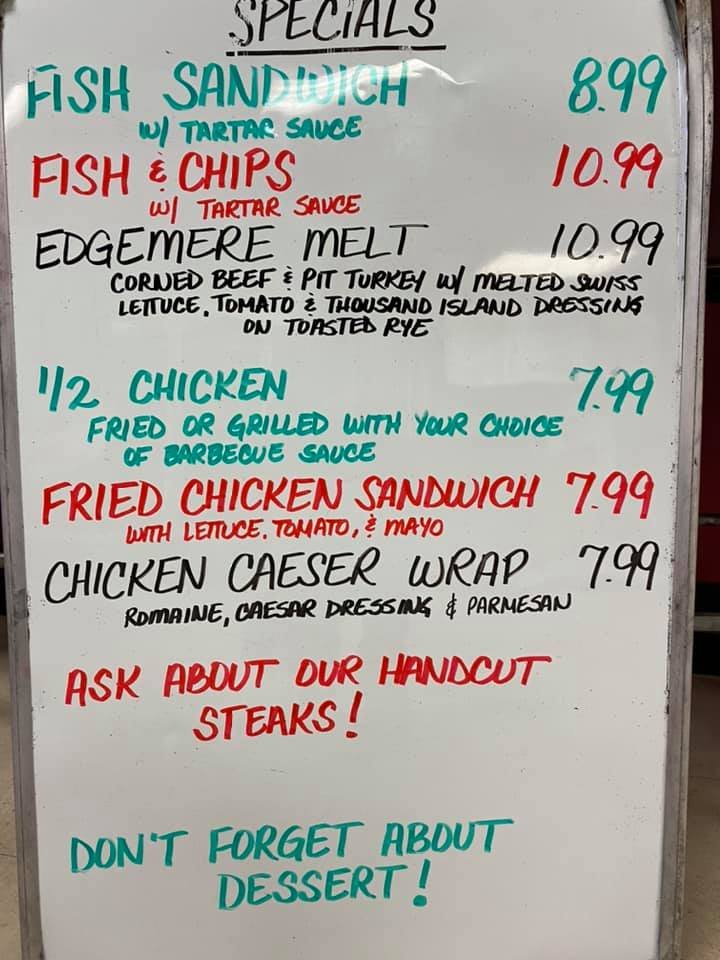 SPECIALS
FISH SANDWICH 8.99
W/ TARTAR SAUCE
FISH & CHIPS 10.99
W/ TARTAR SAUCE
EDGEMERE MELT 10.99
CORNED BEEF & PIT TURKEY W/ MELTED SWISS
LETTUCE, TOMATO & THOUSAND ISLAND DRESSING
ON TOASTED RYE
1/2 CHICKEN 7.99
FRIED OR GRILLED WITH YOUR CHOICE
OF BARBECUE SAUCE
FRIED CHICKEN SANDWICH 7.99
WITH LETTUCE, TOMATO, & MAYO
CHICKEN CAESER WRAP 7.99
ROMAINE, CAESAR DRESSING & PARMESAN
ASK ABOUT OUR HANDCUT
STEAKS!
DON'T FORGET ABOUT
DESSERT!